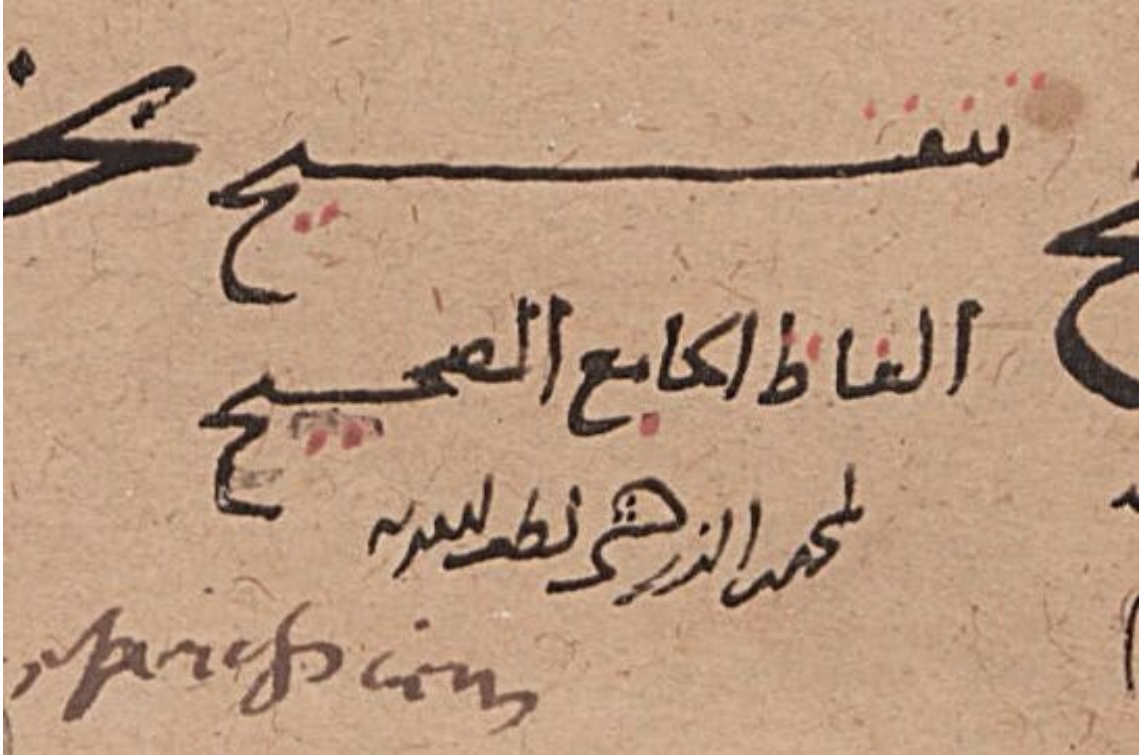 تنقيح
الفاظ الجامع الصحيح
لمحمد الزركشي لطف الله به
expression